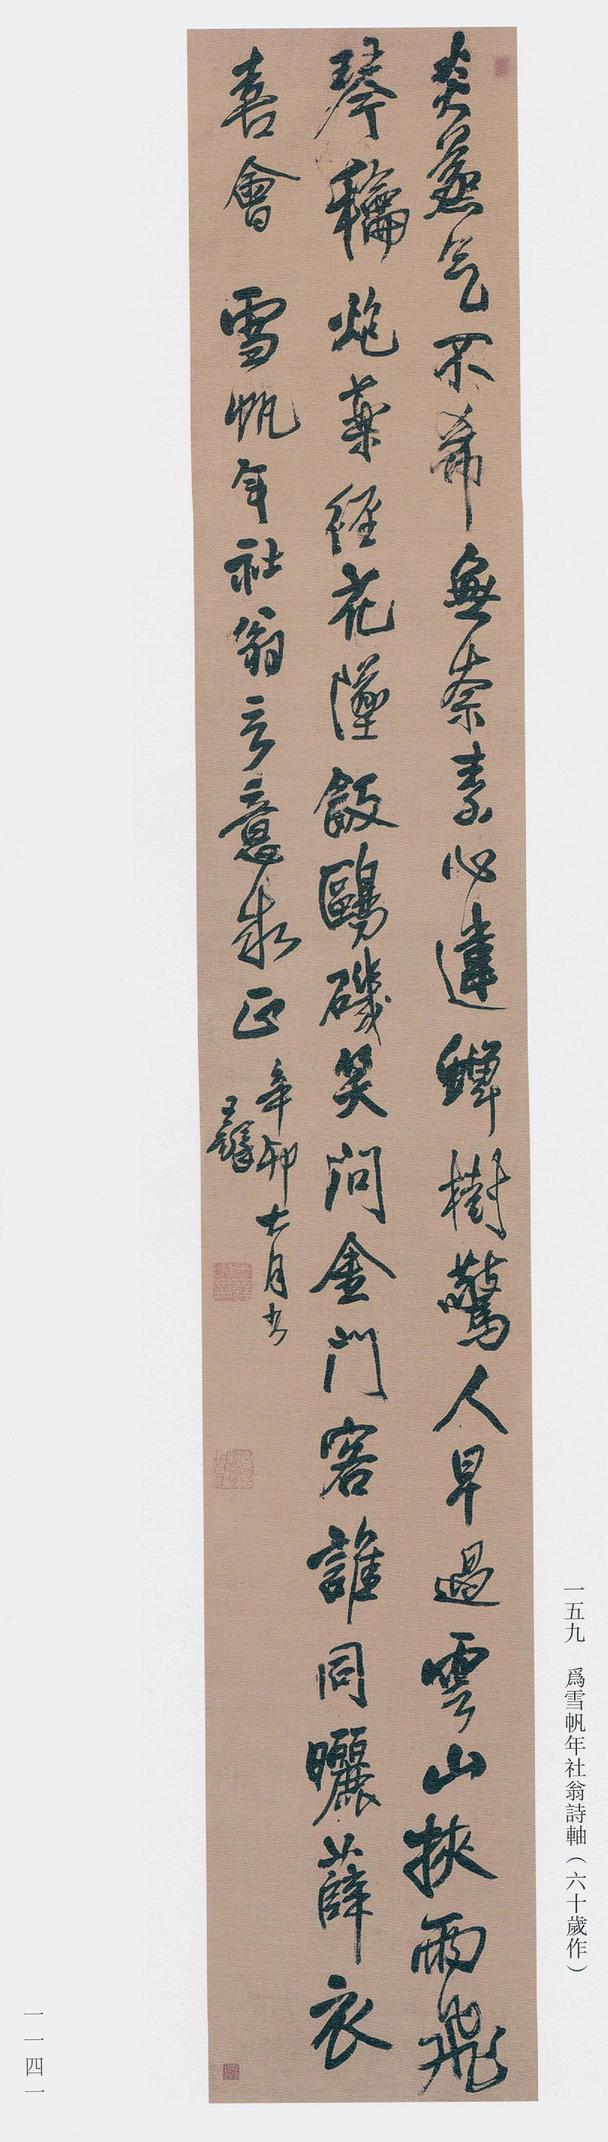 炎蒸气不希無奈素心違蟬樹驚人早過雲山挾雨飛
琴稐炮藥徑花墜飯鷗磯笑問金門客誰同曬薜衣
喜會 雪帆年社翁言意求正
辛卯七月書
王鐸
一五九 爲雪帆年社翁詩軸（六十歲作）
一一四一